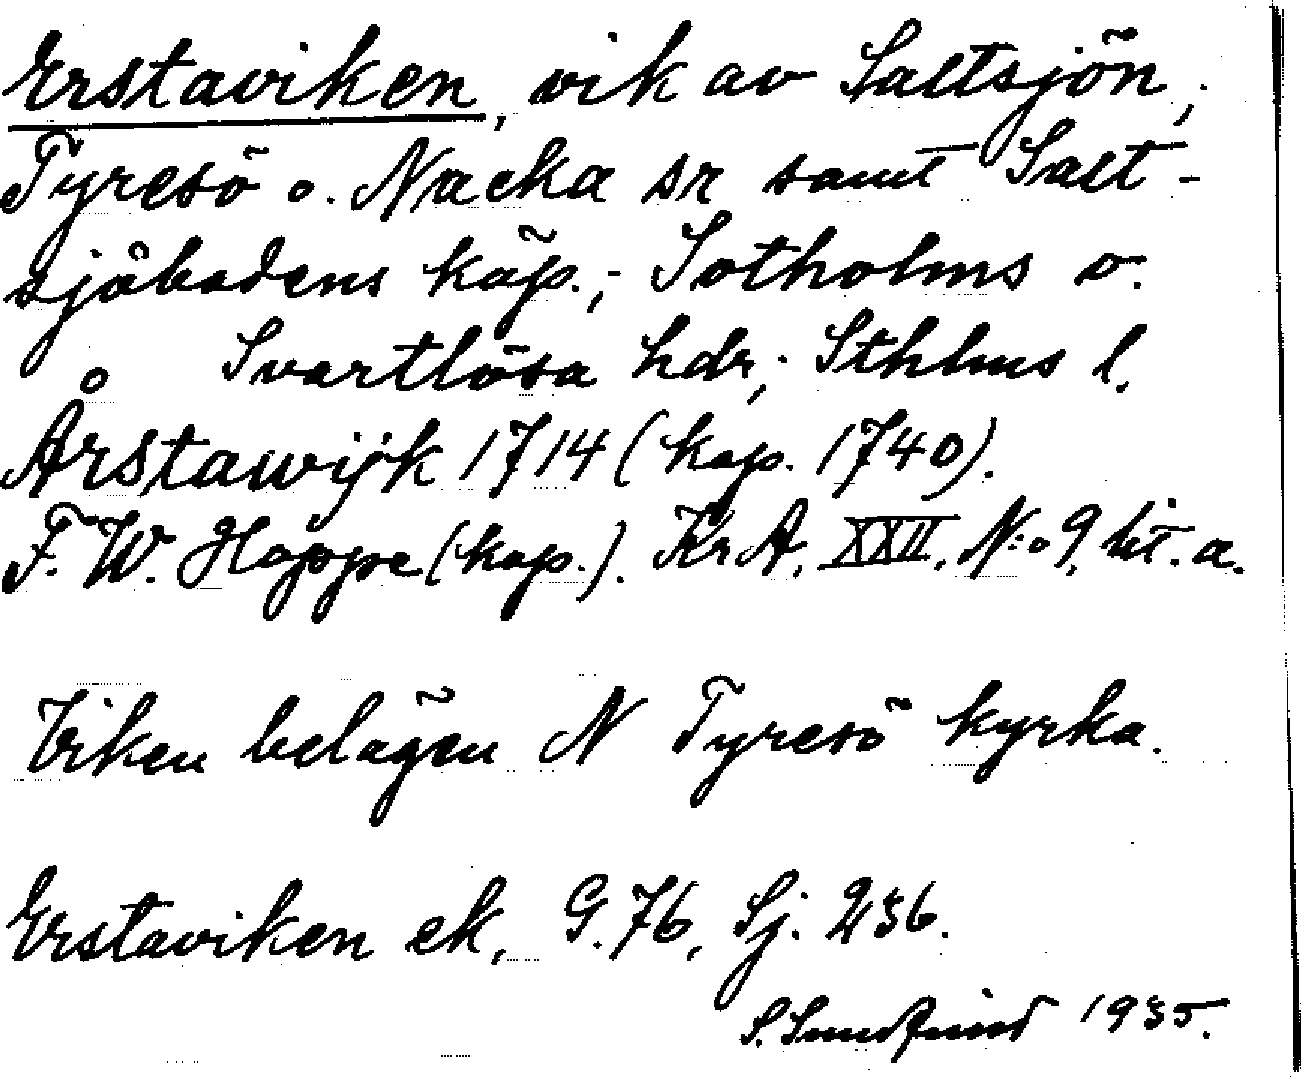 Erstaviken, vik av Saltsjön,
Tyresö o. Nacka sr samt Salt-
sjöbadens köp., Sotholms o.
Svartlösa hdr, Sthlms l.
Årstawijk 1714 (kop. 1740).
F. W. Hoppe (kop.). KrA. XXII. N:o 9, lit. a.
Viken belägen N Tyresö kyrka.
Erstaviken ek. G. 76, Sj. 236.
S. 1935.